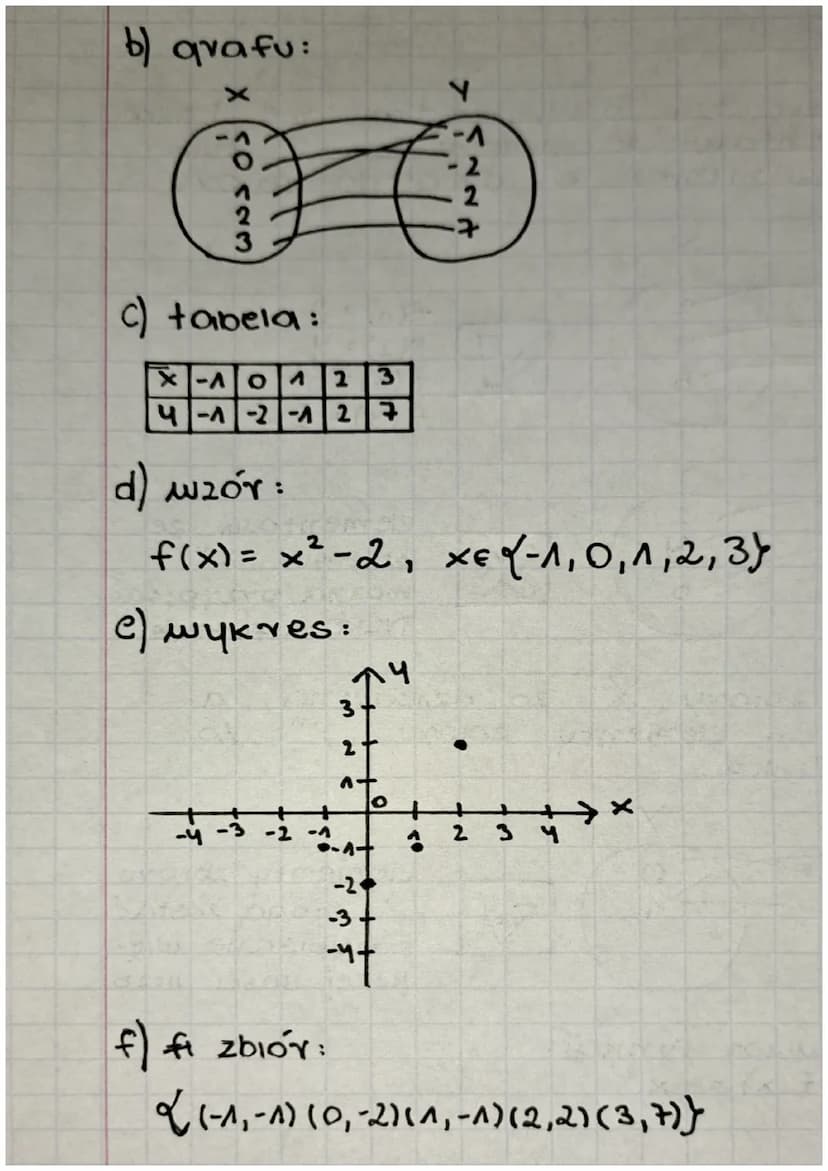 b) grafu:
X Y
-1 -1
0 -2
1 2
2 7
3
c) tabela:
x -1 0 1 2 3
y -1 -2 -1 2 7
d) wzór:
f(x) = x² - 2, x∈{-1, 0, 1, 2, 3}
e) wykres:
y
3
2
1
0
x
-4 -3 -2 -1 1 2 3 4
-1
-2
-3
-4
f) zbiór:
{(-1,-1)(0,-2)(1,-1)(2,2)(3,7)}